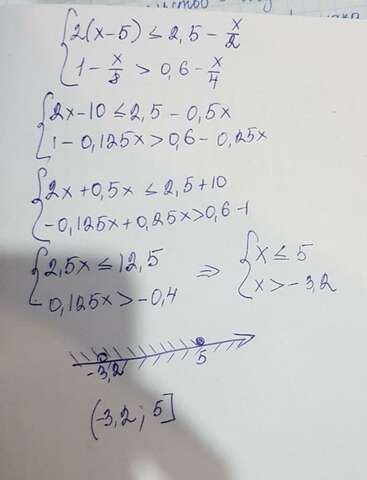 2(x-5) ≤ 2,5 - x/2
1 - x/8 > 0,6 - x/4
2x - 10 ≤ 2,5 - 0,5x
1 - 0,125x > 0,6 - 0,25x
2x + 0,5x ≤ 2,5 + 10
-0,125x + 0,25x > 0,6 - 1
2,5x ≤ 12,5 ⇒ x ≤ 5
0,125x > -0,4 x > -3,2
-3,2 5
(-3,2 ; 5]